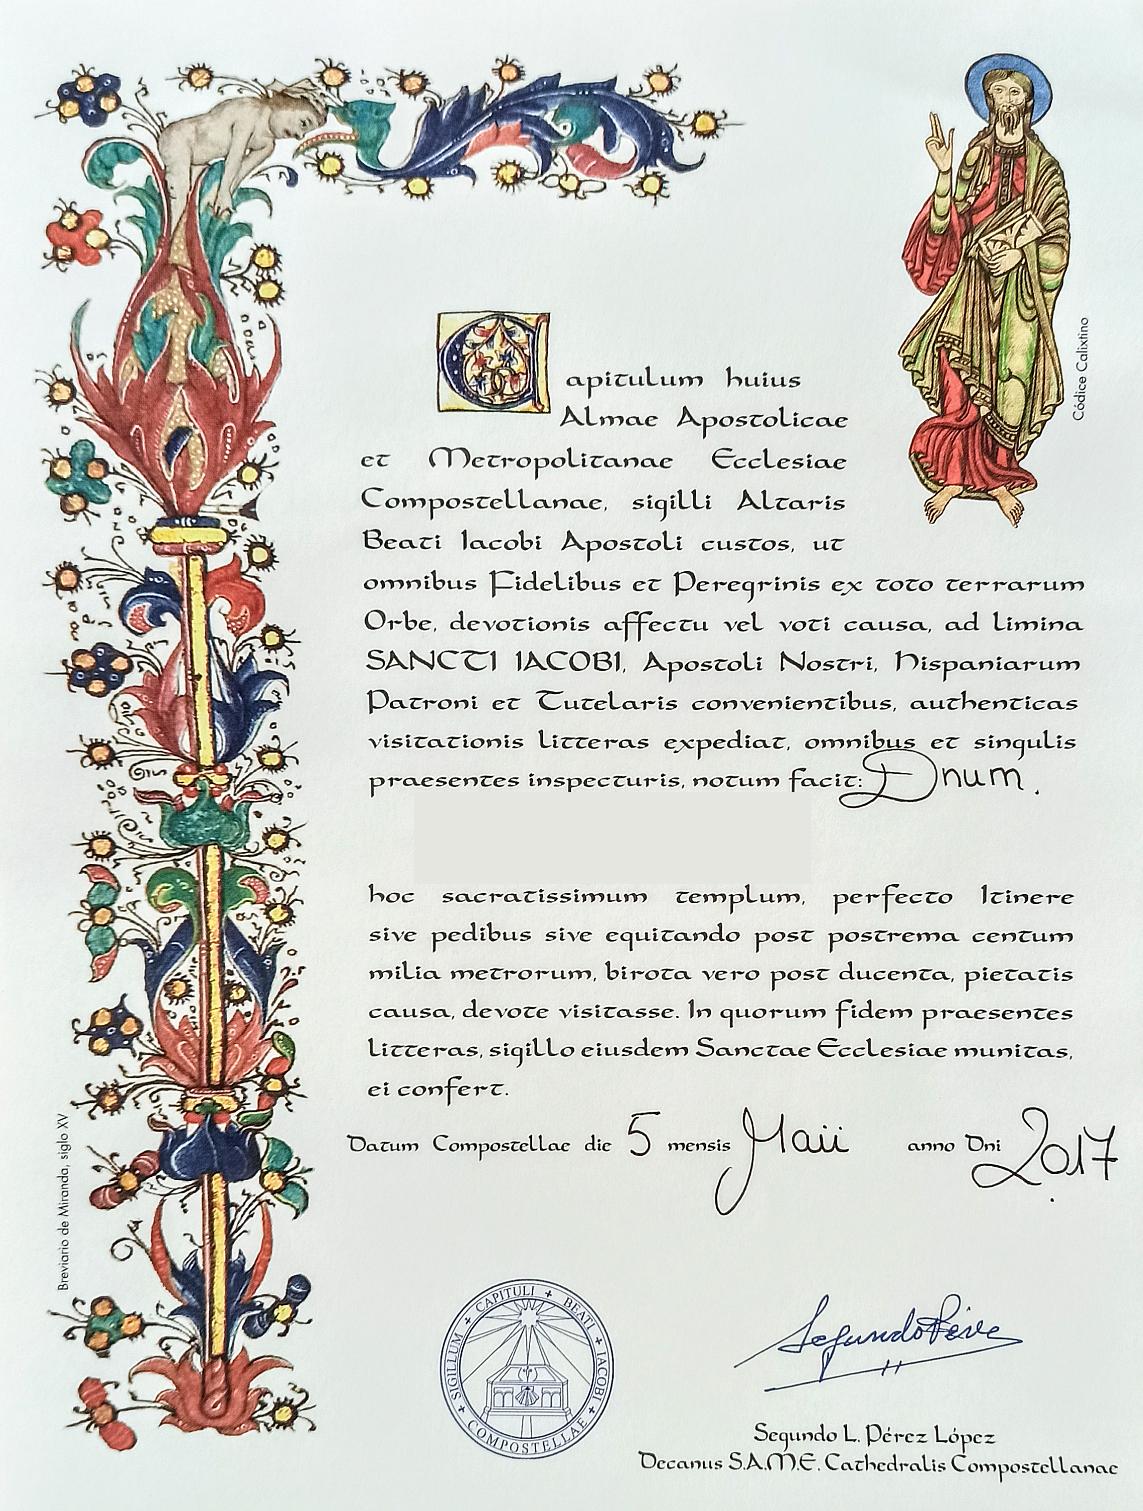 Capitulum huius
Almae Apostolicae
et Metropolitanae Ecclesiae
Compostellanae, sigilli Altaris
Beati Iacobi Apostoli custos, ut
omnibus Fidelibus et Peregrinis ex toto terrarum
Orbe, devotionis affectu vel voti causa, ad limina
SANCTI IACOBI, Apostoli Nostri, Hispaniarum
Patroni et Tutelaris convenientibus, authenticas
visitationis litteras expediat, omnibus et singulis
praesentes inspecturis, notum facit: Dnum.
hoc sacratissimum templum, perfecto Itinere
sive pedibus sive equitando post postrema centum
milia metrorum, birota vero post ducenta, pietatis
causa, devote visitasse. In quorum fidem praesentes
litteras, sigillo eiusdem Sanctae Ecclesiae munitas,
ei confert.
Datum Compostellae die 5 mensis Maii anno Dni 2017
Códice Calixtino
Breviario de Miranda, siglo XV
SIGILLUM + CAPITULI + BEATI + IACOBI + COMPOSTELLAE +
Segundo Pérez
Segundo L. Pérez López
Decanus S.A.M.E. Cathedralis Compostellanae